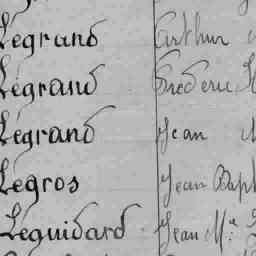 Legrand Arthur
Legrand Frédéric
Legrand Jean
Legros Jean Bapt
Léguidard Jean M.e